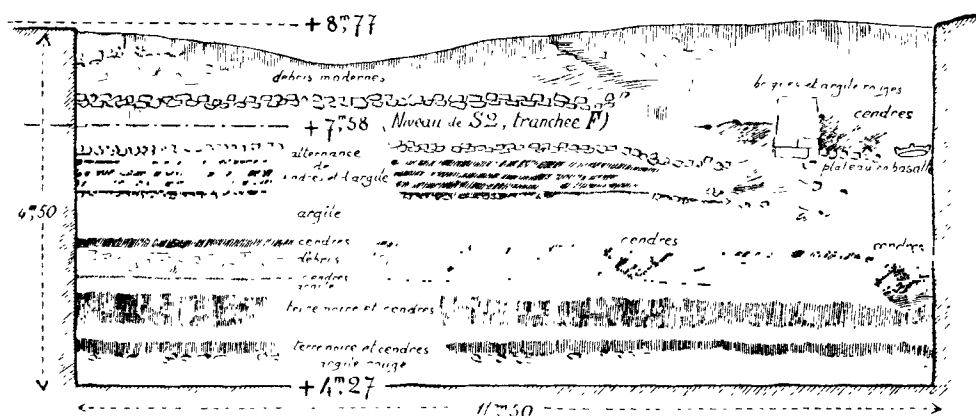 + 8,m77
débris modernes
briques et argile rouges
cendres
+ 7,m58 (Niveau de S2, tranchée F)
alternance
de
cendres et d'argile
plateau en basalte
4,m50
argile
cendres
cendres
cendres
débris
cendres
argile
terre noire et cendres
terre noire et cendres
argile rouge
+ 4,m27